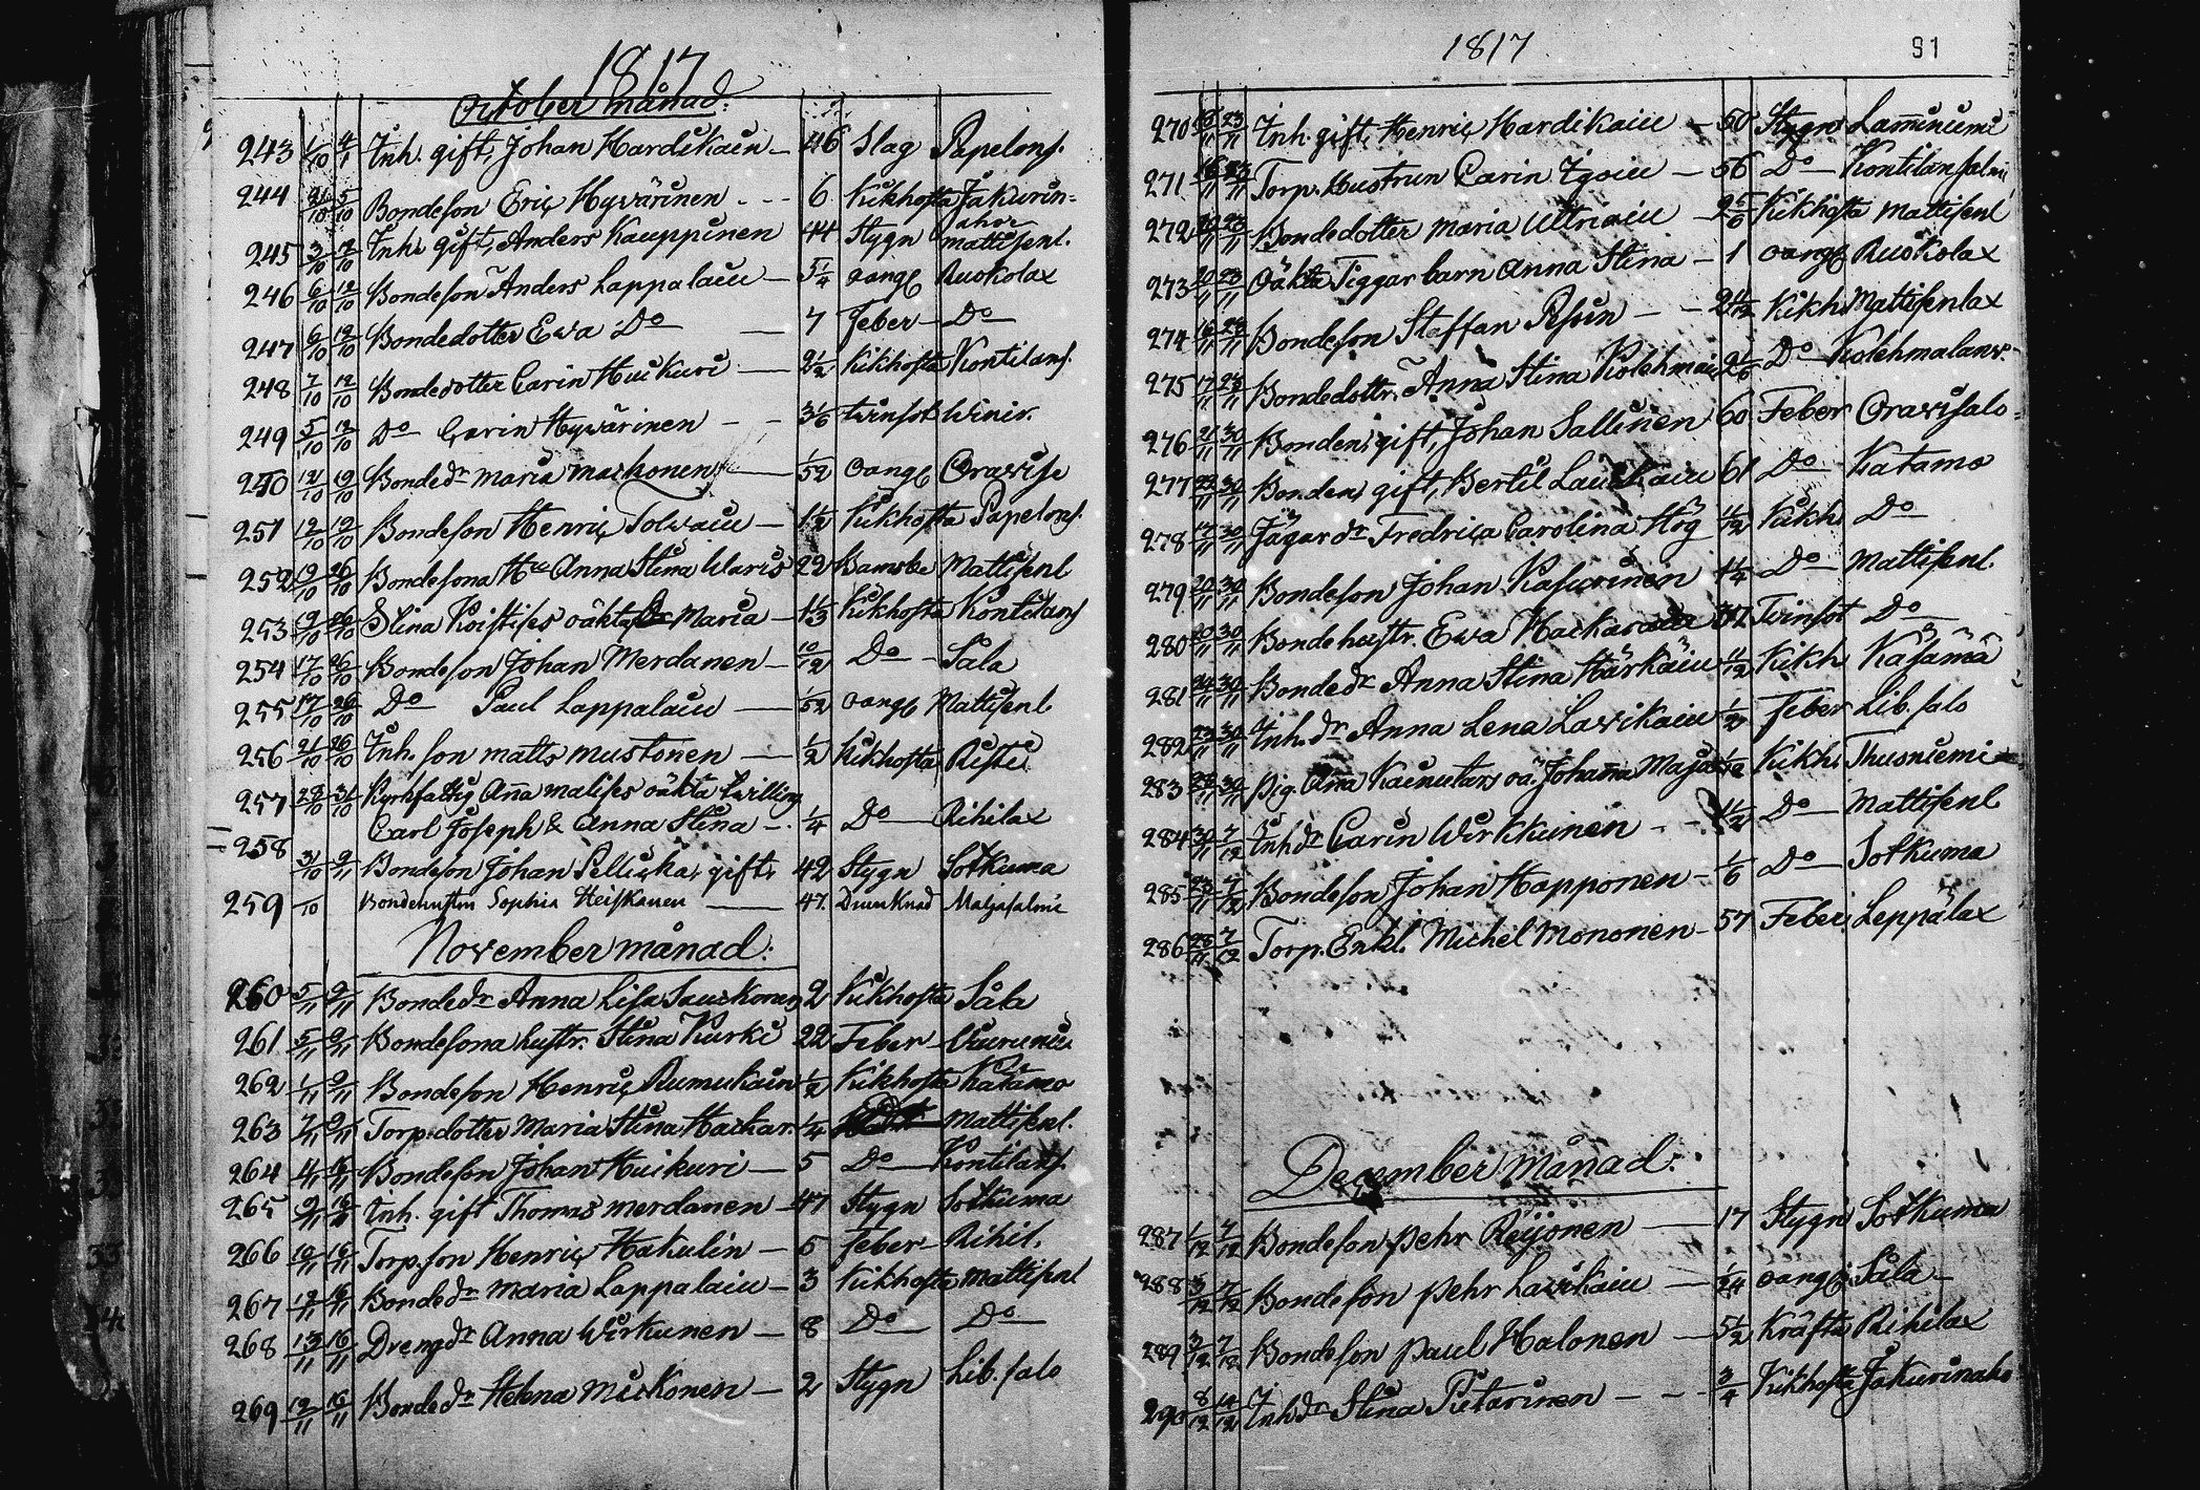 1817
October månad:
243 1/10 4/1 Inh. gift, Johan Hardikain — 46 Slag Papelons.
244 2/10 5/10 Bondeson Eric Hyvärinen - - - 6 Kikhosta Jakurin=
aho
245 3/10 12/10 Inh. gift, Anders Kauppinen 44 Stygn Mattisenl.
246 6/10 12/10 Bondeson Anders Lappalain — 5 1/4 oangf Ruokolax
247 6/10 12/10 Bondedotter Ewa Do — 7 Feber — Do —
248 7/10 12/10 Bondedotter Carin Huikuri — 2 1/2 Kikhosta Kontilans.
249 5/10 12/10 Do Carin Hyvärinen - - 3 1/6 twinsot Winiv.
250 12/10 19/10 Bondedr Maria — 1/52 oangf Orawise
251 12/10 19/10 Bondeson Henric Tolwain — 1 1/2 Kikhosta Papelons.
252 19/10 26/10 Bondesona Hu Anna Stina Waris 22 Barnsbe Mattisenl
253 9/10 26/10 Stina Koistises oäkta Dr Maria — 1 1/3 Kikhosta Kontilans
254 17/10 26/10 Bondeson Johan Merdanen — 10/12 Do — Sala
255 17/10 26/10 Do Paul Lappalain — 1/52 oangf Mattisenl
256 21/10 26/10 Inh. son Matts Mustonen — 1/2 Kikhosta Riste
257 28/10 31/10 Kyrkfattig Aña Malises oäkta twilling
258 Carl Joseph & Anna Stina — 1/4 Do — Rihilax
31/10 9/11 Bondeson Johan Pellicka, gift, 42 Stygn Sotkuma
259 /10 Bondehustrun Sophia Heiskanen — 47. Drunknad Maljasalmi
November månad:
260 5/11 9/11 Bondedr Anna Lisa 2 Kikhosta Sala
261 5/11 9/11 Bondesona hustr. Stina Kurki 22 Feber —
262 1/11 9/11 Bondeson Henric Rumukain 1/2 Kikhosta Katamo
263 7/11 9/11 Torp. dotter Maria Stina Hackar. 1/4 Mattisenl.
264 4/11 16/11 Bondeson Johan Huikuri — 5 Do — Kontilans.
265 9/11 16/11 Inh. gift Thomas Merdanen — 47 Stygn Sotkuma
266 10/11 16/11 Torp. son Henric Hakulin — 5 Feber — Rihil.
267 12/11 16/11 Bondedr Maria Lappalain — 3 Kikhosta Mattisenl
268 13/11 16/11 Drengdr Anna Wirkunen — 8 Do — Do —
269 12/11 16/11 Bondedr Helena Mickonen — 2 Stygn Lib. salo
1817 91
270 19/11 23/11 Inh. gift, Henric Hardikain — 50 Stygn Lamiñiemi
271 16/11 23/11 Torp. Hustrun Carin — 56 Do — Kontilansalmi
272 20/11 23/11 Bondedotter Maria Ultriain — 2 5/6 Kikhosta Mattisenl
273 20/11 23/11 Oäkta Tiggar barn Anna Stina — 1 oangf Ruokolax
274 16/11 23/11 Bondeson Staffan - - 2 Kikh. Mattisenlax
275 17/11 23/11 Bondedottr. Anna Stina Kolehmain 2 1/6 Do Kolehmalanv.
276 21/11 30/11 Bonden, gift, Johan Sallinen 60 Feber Orawisalo=
277 22/11 30/11 Bonden, gift, Bertil Lauckain 61 Do — Katamo
278 17/11 30/11 Jägar dr Fredrica Carolina Hög 1/12 Kikh. Do
279 20/11 30/11 Bondeson Johan Kasurinen 1 1/4 Do — Mattisenl.
280 20/11 30/11 Bondehustr. Ewa 37 Twinsot Do —
281 24/11 30/11 Bondedr Anna Stina Härkäin 11/12 Kikh. Käsämä
282 23/11 30/11 Inh. dr Anna Lena Lavikain 1/2 Feber Lib. salo
283 22/11 30/11 Pig. Aña Kainutars oä. Johanna Maja Kikh. Thusniemi
284 30/11 7/12 Inh dr Carin Wirkkuinen - - 1 1/2 Do — Mattisenl
285 23/11 7/12 Bondeson Johan Happonen — 1/6 Do — Sotkuma
286 28/11 7/12 Torp. Enkl. Michel Mononen — 57 Feber Leppälax
December månad:
287 1/12 7/12 Bondeson Pehr Reijonen — 17 Stygn Sotkuma
288 3/12 7/12 Bondeson Pehr Lavikain — 1/24 oangf Sala —
289 3/12 7/12 Bondeson Paul Halonen — 5 1/2 Kräfta Rihilax
290 8/12 14/12 Inh dr Stina Pitarinen - - 3/4 Kikhosta Jakurinaho